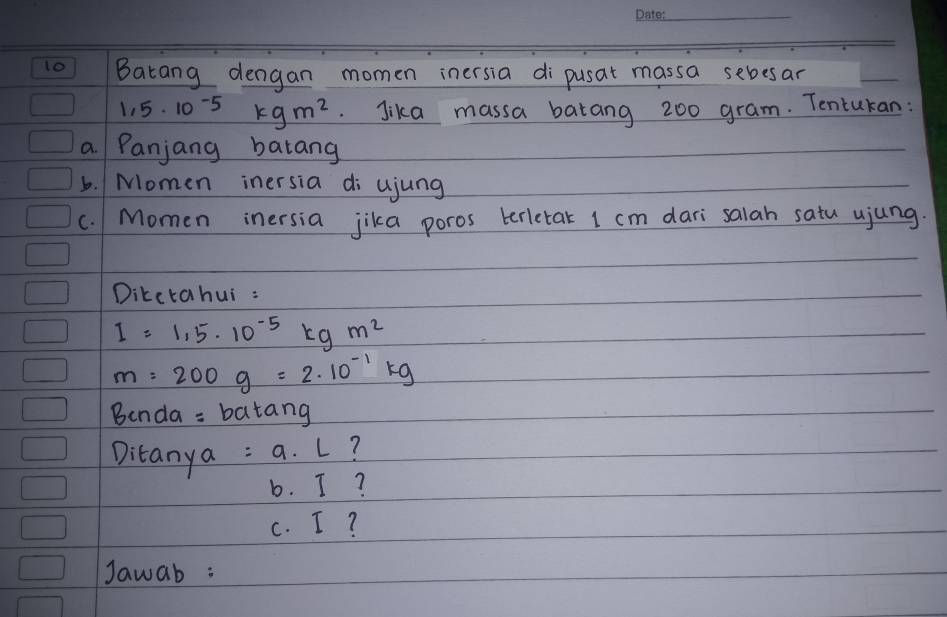 Date:
10 Batang dengan momen inersia di pusat massa sebesar
1,5 . 10⁻⁵ kgm². Jika massa batang 200 gram. Tentukan:
a. Panjang batang
b. Momen inersia di ujung
c. Momen inersia jika poros terletak 1 cm dari salah satu ujung.
Diketahui :
I = 1,5 . 10⁻⁵ kg m²
m = 200 g = 2 . 10⁻¹ kg
Benda = batang
Ditanya : a. L ?
b. I ?
c. I ?
Jawab :